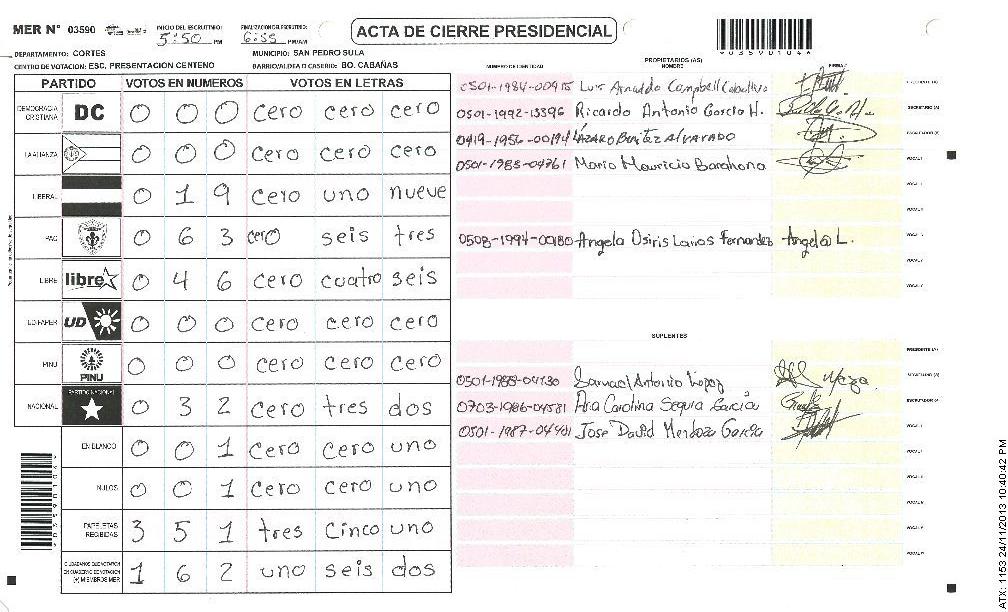 MER N° 03590 INICIO DEL ESCRUTINIO: 5:50 PM FINALIZACION DEL ESCRUTINIO: 6:55 PM/AM ACTA DE CIERRE PRESIDENCIAL
DEPARTAMENTO: CORTES MUNICIPIO: SAN PEDRO SULA
CENTRO DE VOTACION: ESC. PRESENTACION CENTENO BARRIO/ALDEA O CASERIO: BO. CABAÑAS
PARTIDO VOTOS EN NUMEROS VOTOS EN LETRAS
DEMOCRACIA CRISTIANA DC 0 0 0 cero cero cero
LA ALIANZA 0 0 0 cero cero cero
LIBERAL 0 1 9 cero uno nueve
PAC 0 6 3 cero seis tres
LIBRE libre 0 4 6 cero cuatro seis
UD/FAPER UD 0 0 0 cero cero cero
PINU PINU 0 0 0 cero cero cero
NACIONAL PARTIDO NACIONAL 0 3 2 cero tres dos
EN BLANCO 0 0 1 cero cero uno
NULOS 0 0 1 cero cero uno
PAPELETAS RECIBIDAS 3 5 1 tres cinco uno
CIUDADANOS QUE VOTARON EN CUADERNO DE VOTACION (+) MIEMBROS MER 1 6 2 uno seis dos
PROPIETARIOS (AS)
NUMERO DE IDENTIDAD NOMBRE FIRMA
0501-1984-00915 Luis Arnaldo Campbell Caballero
0501-1992-13396 Ricardo Antonio Garcia H. SECRETARIO (A)
0419-1956-00194 Lázaro Benitez Alvarado ESCRUTADOR (A)
0501-1983-04761 Mario Mauricio Barahona VOCAL I
0508-1994-00180 Angela Osiris Larios Fernandez Angela L.
SUPLENTES
PRESIDENTE (A)
0501-1988-04130 Samuel Antonio López Meza SECRETARIO (A)
0703-1986-04581 Ana Carolina Segura Garcia ESCRUTADOR (A)
0501-1987-04401 Jose David Mendoza Garcia VOCAL I
ATX: 1153 24/11/2013 10:40:42 PM